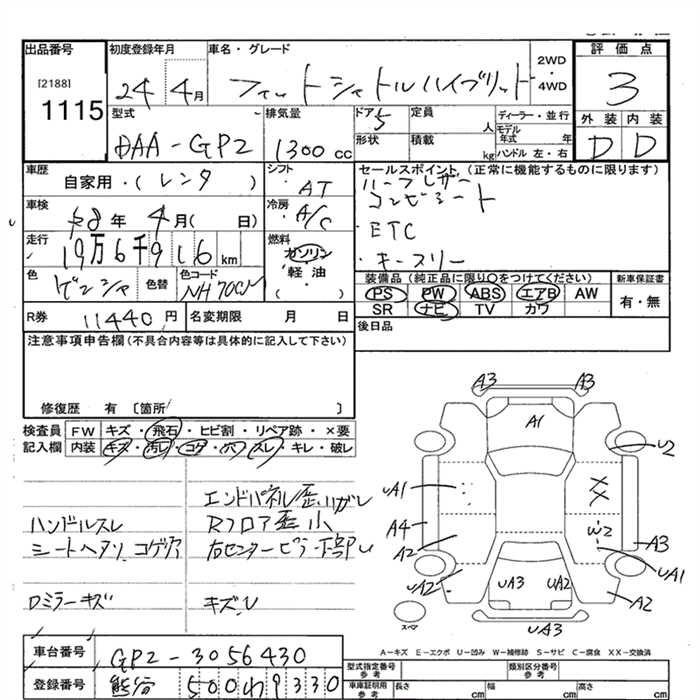 出品番号
[2188]
1115
初度登録年月
24 4月
車名・グレード
フィットシャトルハイブリット
2WD
・
4WD
評価点
3
外装 内装
D D
型式
DAA-GP2
排気量
1300 cc
ドア 5
形状
定員 人
積載 kg
ディーラー・並行
モデル年式 年
ハンドル 左・右
車歴
自家用・(レンタ)
シフト
AT
セールスポイント (正常に機能するものに限ります)
・ハーフレザー
コンビシート
・ETC
・キースリー
車検
8年 4月( 日)
冷房
A/C
走行
19万6千916 km
燃料
ガソリン
軽油
・( )
色
ゲンシャ
色替
色コード
装備品 (純正品に限り○をつけてください)
PS PW ABS エアB AW
SR ナビ TV カワ
新車保証書
有・無
後日品
R券 11440円
名変期限 月 日
注意事項申告欄(不具合内容等は具体的に記入して下さい)
修復歴 有 〔箇所 〕
検査員記入欄
FW キズ・飛石・ヒビ割・リペア跡・×要
内装 キズ・汚レ・コゲ・穴・スレ・キレ・破レ
エンドパネル歪
ハンドルスレ Rフロア歪小
シートヘタリ コゲ穴 右センターピラー下部U
Dミラーキズ キズ、U
A3 A3
A1
U2
UA1
A4
A2
W2
A3
UA1
UA2
UA3 UA2
A2
UA3
スペア
A-キズ E-エクボ U-凹み W-補修跡 S-サビ C-腐食 XX-交換済
車台番号
GP2-3056430
登録番号
熊谷 500 わ 9330
型式指定番号 参考
類別区分番号 参考
車庫証明用 参考
長さ cm 幅 cm 高さ cm